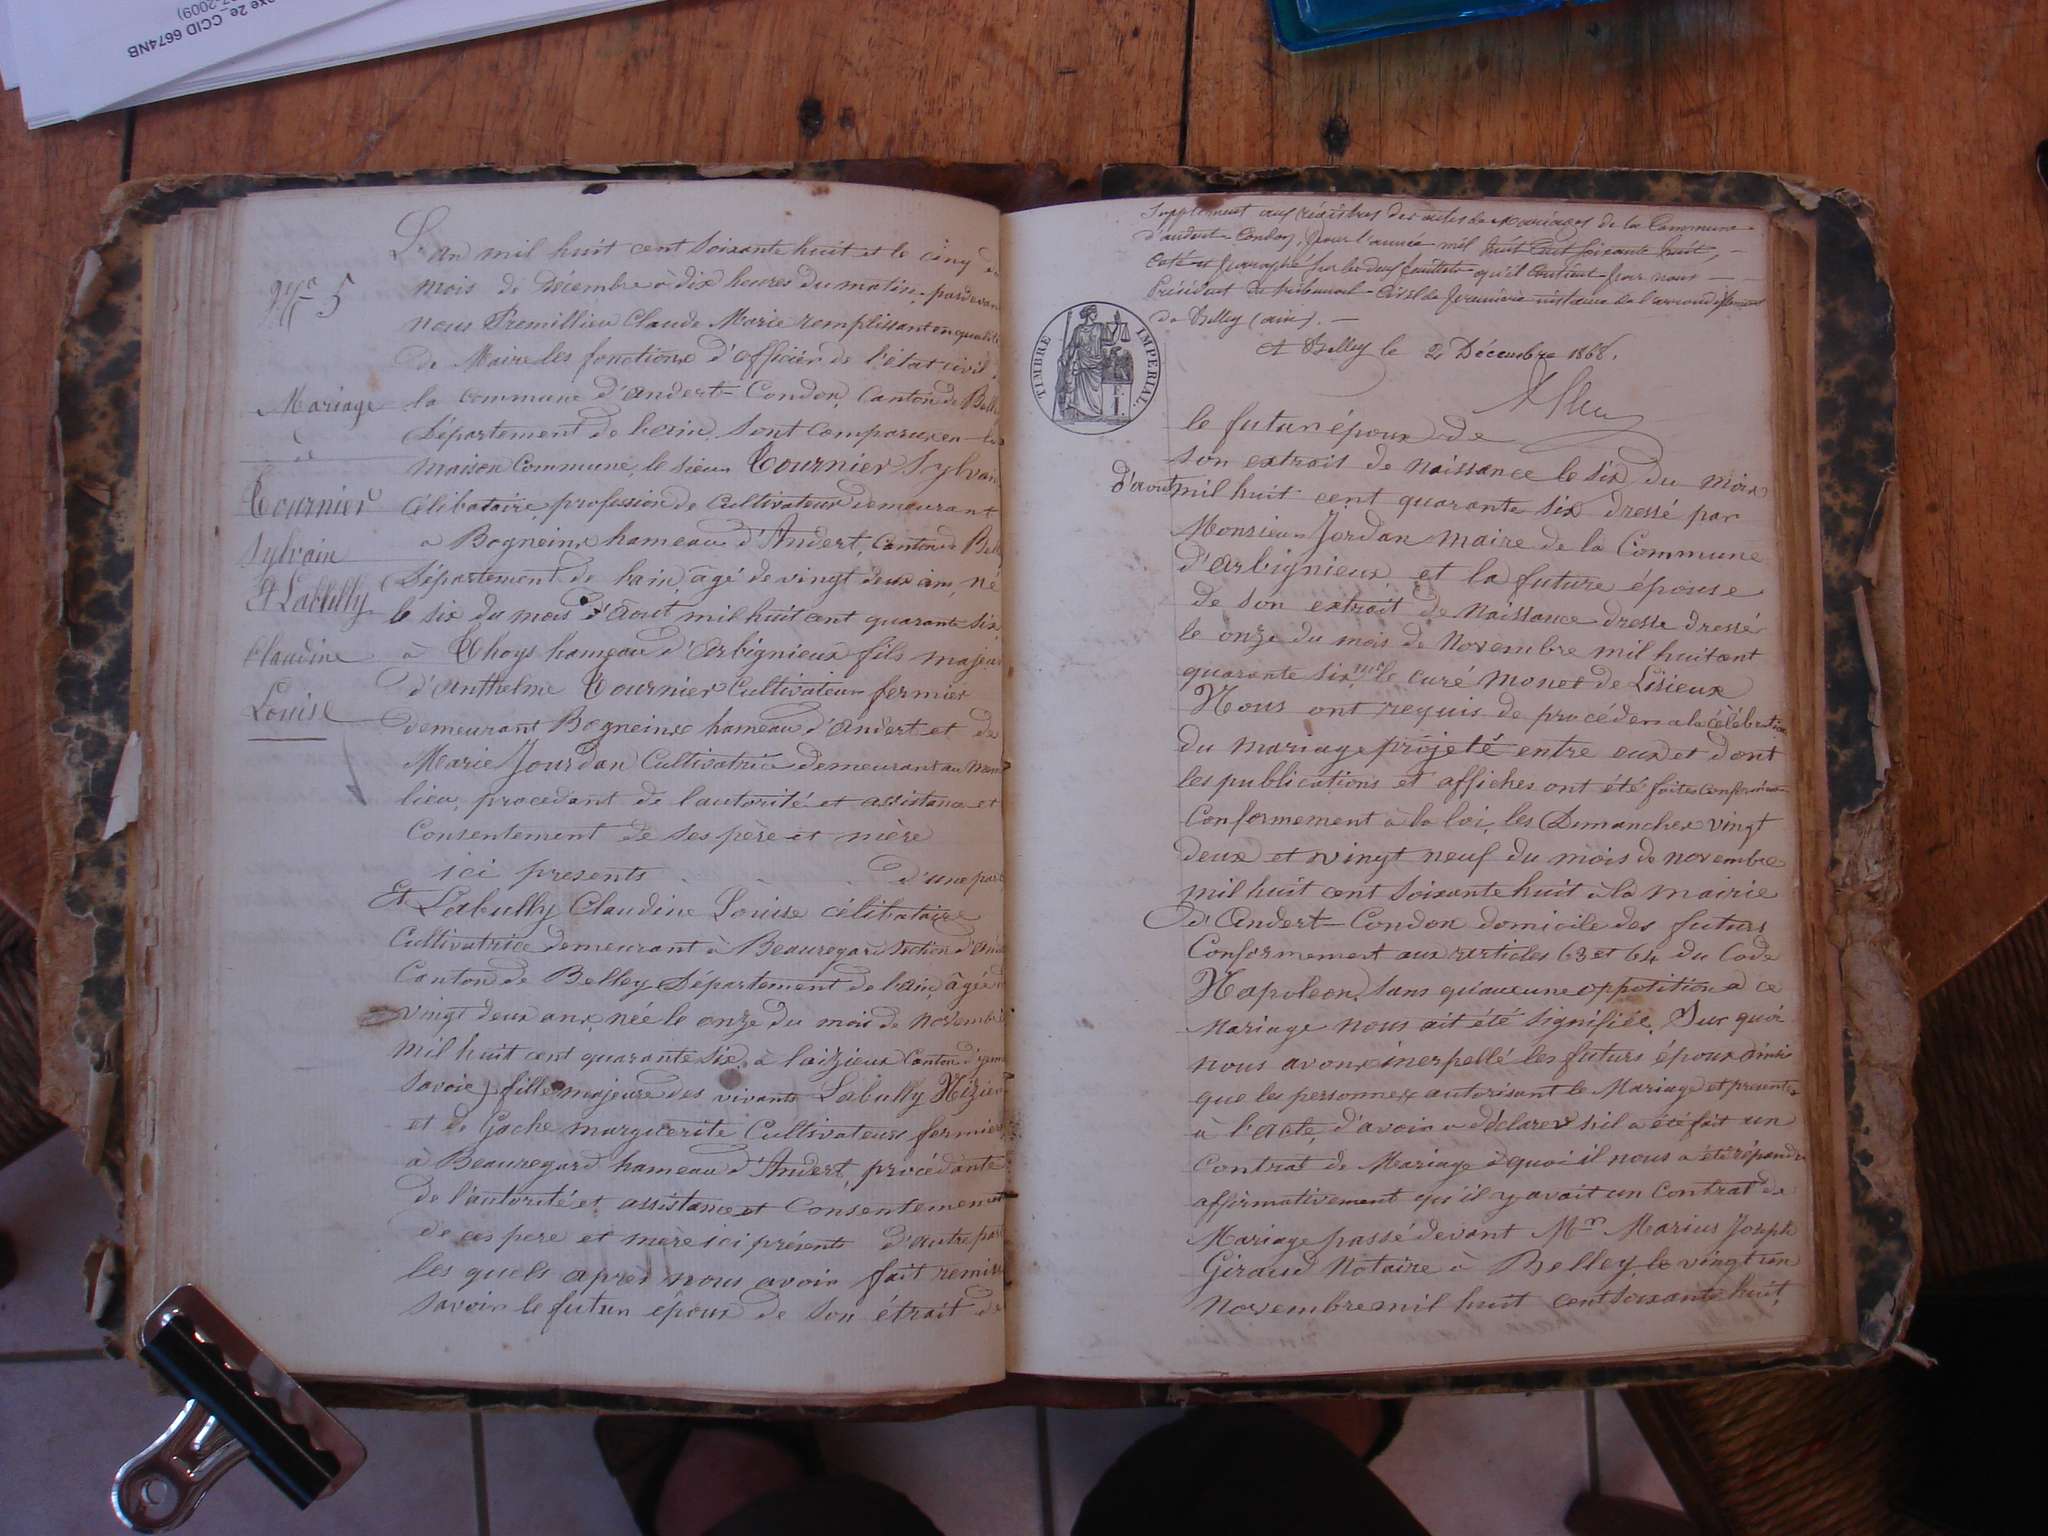 CCID 6674NB
7-2009)
L'an mil huit cent soixante huit et le cinq du
mois de Décembre à dix heures du matin, pardevant
nous Premillieu Claude Marie remplissant en qualité
de Maire les fonctions d'officier de l'état civil
la commune d'andert-Condon, Canton de Belle
Département de l'ain, sont comparux en la
maison Commune, le sieur Tournier Sylvain
Célibataire profession de Cultivateur demeurant
a Bogneinx hameau d'Andert, Canton de Bell
Département de l'ain, âgé de vingt deux ans, né
le six du mois d'Aout mil huit cent quarante six,
à Thoys hameau d'Arbignieux fils majeur
d'Anthelme Tournier Cultivateur fermier
demeurant Bogneinx hameau d'Andert et de
Marie Jourdan Cultivatrice demeurant au mem
lieu, procedant de l'autorité et assistance et
Consentement de ses père et mère
ici presents d'une part
Et Labully Claudine Louise célibataire
Cultivatrice demeurant à Beauregard section d'And
Canton de Belley Département de l'ain, âgée de
vingt deux ans, née le onze du mois de Novembre
mil huit cent quarante six, à laizieux Canton d'yenne
Savoie) fille majeure des vivants Labully Nizier
et de Gache marguerite Cultivateurs fermiers
à Beauregard hameau d'Andert, procédante
de l'autorité et assistance et Consentement
de ces pere et mère ici présents d'autre part
les quels apres nous avoir fait remise
Savoir le futur époux de son étrait de
No 5
Mariage
de
Tournier
Sylvain
Et Labully
Claudine
Louise
Supplément aux régistres des actes de Mariages de la Commune
d'andert-Condon, pour l'année mil huit cent soixante huit, —
Coté et paraphé sur les deux feuillets qu'il contient par nous —
Président du tribunal Civil de première instance de l'arrondissement
de Belley (ain). —
A Belley le 2 Décembre 1868.
TIMBRE IMPERIAL
le futur époux de
son extrait de naissance le six du mois
d'aout mil huit cent quarante six dressé par
Monsieur Jordan maire de la Commune
d'Arbignieux, et la future épouse
de son extrait de naissance dresse dressé
le onze du mois de Novembre mil huit cent
quarante six, mr le curé monet de Lisieux
Nous ont requis de procéder a la célébration
du mariage projeté entre eux et dont
les publications et affiches ont été faites
Conformement à la loi, les Dimanches vingt
deux et vingt neuf du mois de novembre
mil huit cent soixante huit à la mairie
d'Andert-Condon domicile des futurs
Conformement aux articles 63 et 64 du Code
Napoleon, sans qu'aucune oppotition a ce
mariage nous ait été signifiée, Sur quoi
nous avons inerpellé les futurs époux ainsi
que les personnes autorisant le Mariage et presentes
à l'acte, d'avoir a déclarer s'il a été fait un
Contrat de Mariage à quoi il nous a été répondu
affirmativement qu'il y avait un Contrat de
Mariage passé devant Mr Marius Joseph
Giraud Notaire à Belley le vingt un
novembre mil huit cent soixante huit,